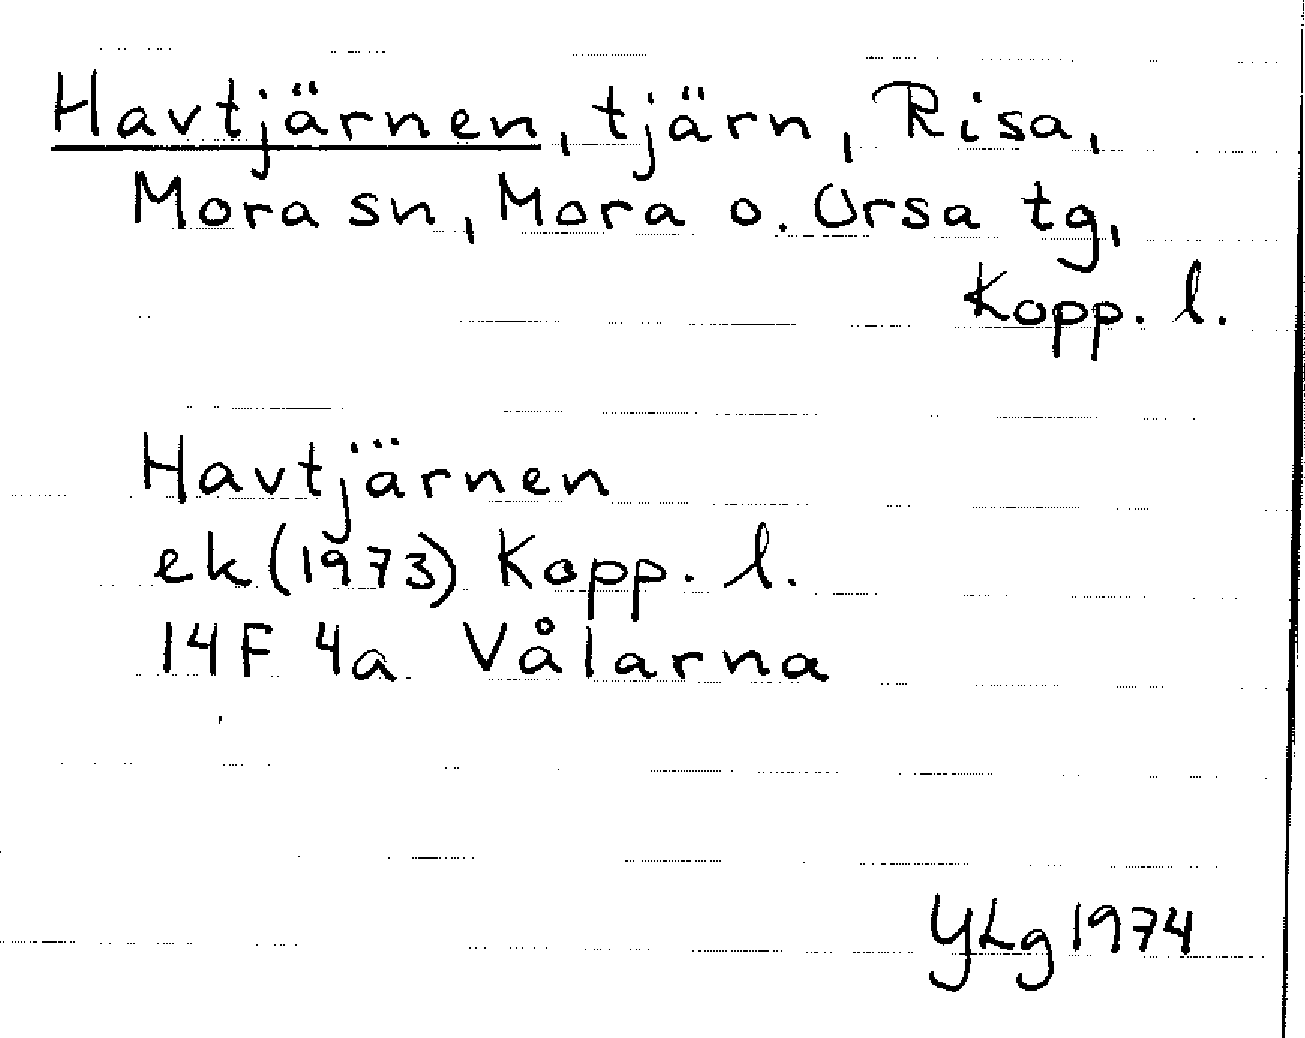 Havtjärnen, tjärn, Risa,
Mora sn, Mora o. Orsa tg,
Kopp. l.
Havtjärnen
ek (1973) Kopp. l.
14F 4a Vålarna
YLg 1974